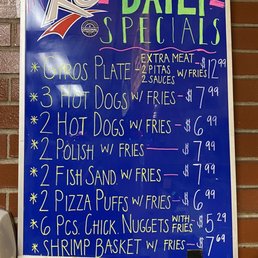 DAILY
SPECIALS
*GYROS PLATE EXTRA MEAT 2 PITAS 2 SAUCES W/ FRIES - $12.99
*3 HOT DOGS W/ FRIES - $7.99
*2 HOT DOGS W/ FRIES - $6.99
*2 POLISH W/ FRIES - $7.99
*2 FISH SAND W/ FRIES - $7.99
*2 PIZZA PUFFS W/ FRIES - $6.99
*6 PCS. CHICK. NUGGETS WITH FRIES - $5.29
*SHRIMP BASKET W/ FRIES - $7.69